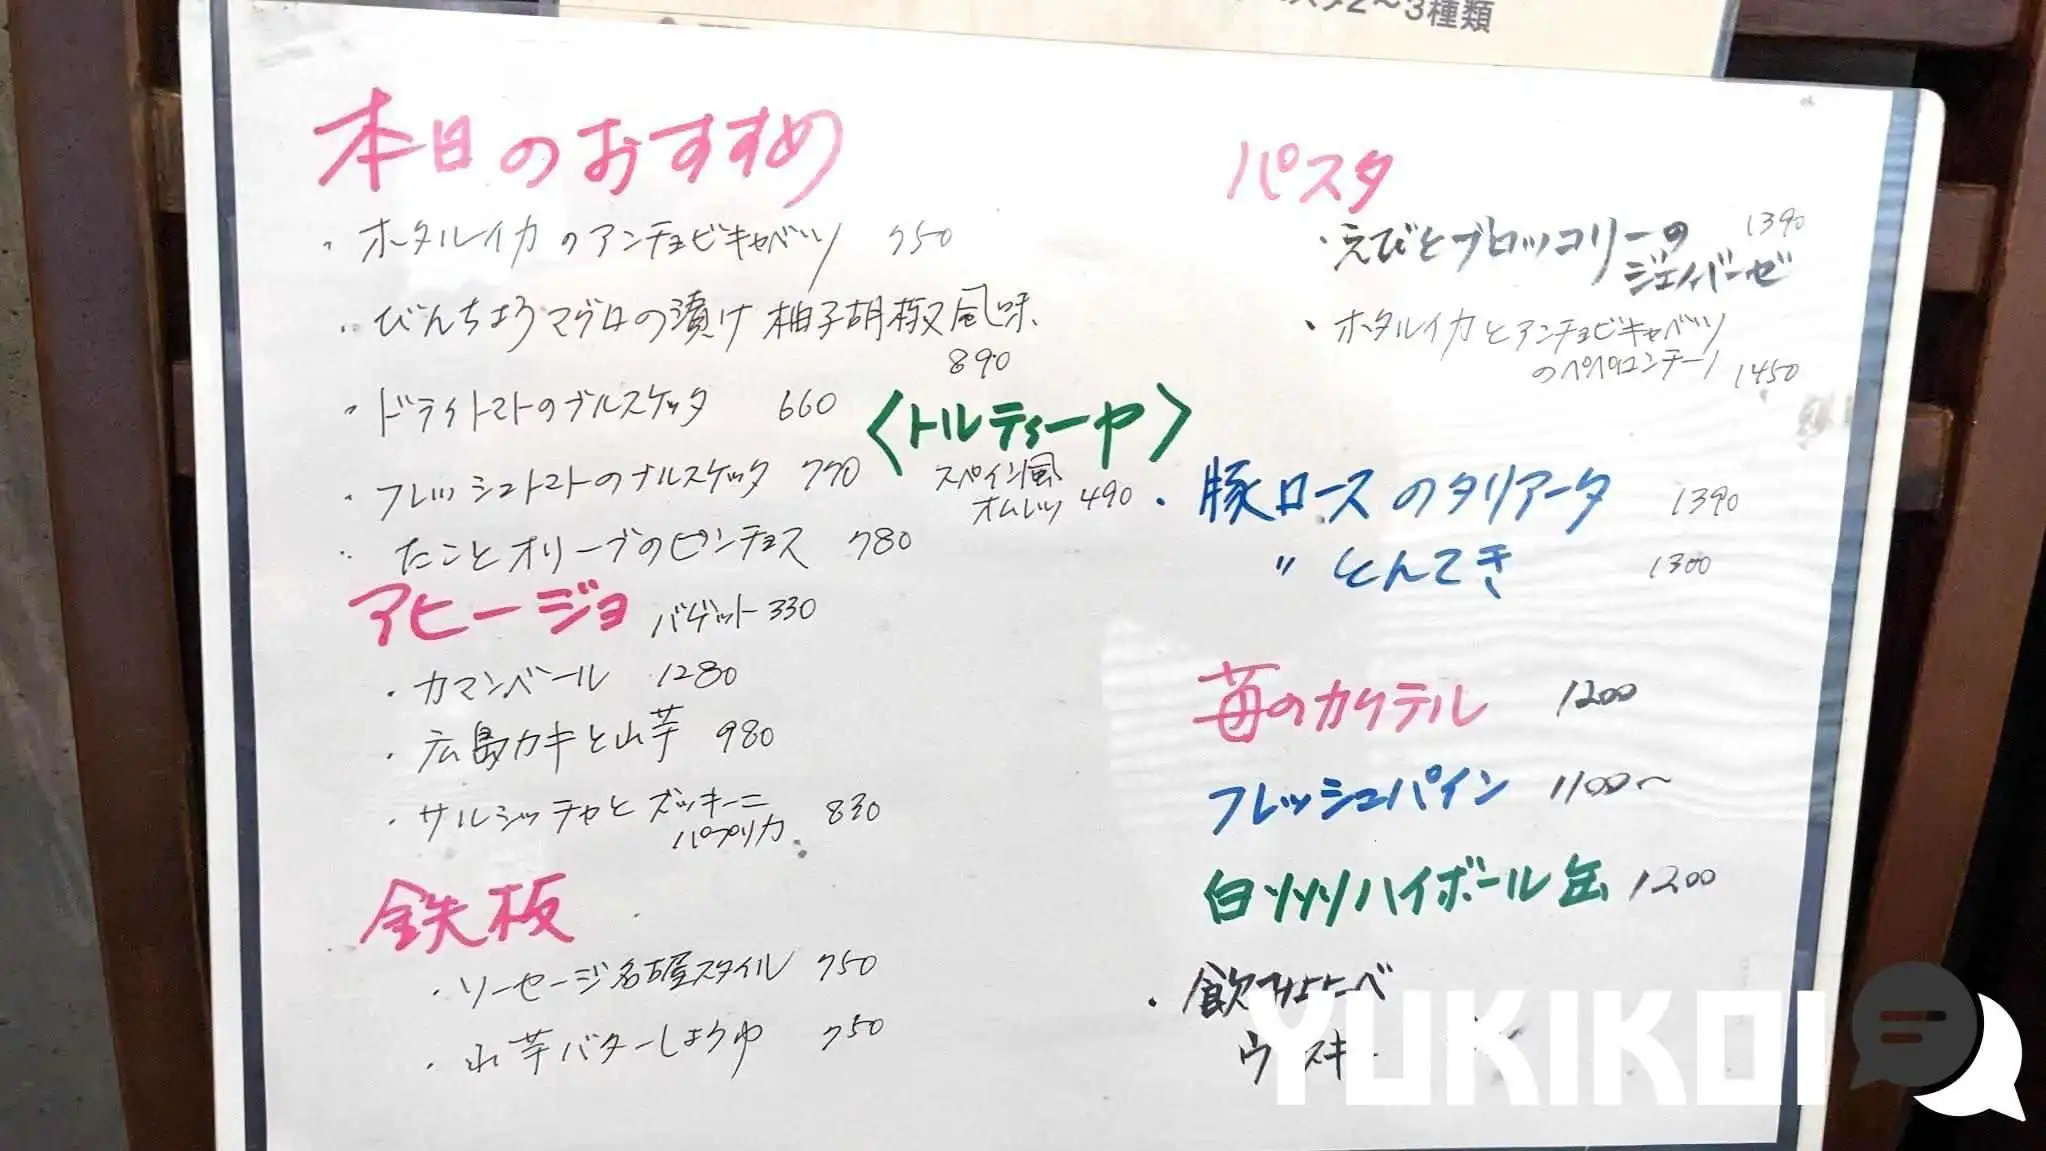 2〜3種類
本日のおすすめ
・ホタルイカのアンチョビキャベツ 750
・びんちょうマグロの漬け 柚子胡椒風味
890
・ドライトマトのブルスケッタ 660
・フレッシュトマトのブルスケッタ 770
・たことオリーブのピンチョス 780
〈トルティーヤ〉
スペイン風
オムレツ 490
アヒージョ バゲット 330
・カマンベール 1280
・広島カキと山芋 980
・サルシッチャとズッキーニ 830
パプリカ
鉄板
・ソーセージ名古屋スタイル 750
・山芋バターしょうゆ 750
パスタ
・えびとブロッコリーの 1390
ジェノバーゼ
・ホタルイカとアンチョビキャベツ
のペペロンチーノ 1450
・豚ロースのタリアータ 1390
〃 とんてき 1300
苺のカクテル 1200
フレッシュパイン 1100〜
白州ハイボール缶 1200
YUKIKOI